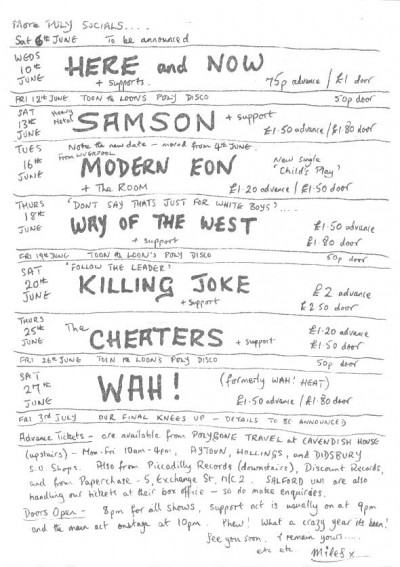 More POLY SOCIALS....
Sat 6th JUNE To be announced
WEDS 10th JUNE HERE and NOW
+ supports. 75p advance / £1 door
FRI 12th JUNE TOON the LOON'S POLY DISCO 50p door
SAT 13th JUNE Heavy Metal SAMSON + support
£1.50 advance / £1.80 door
TUES 16th JUNE Note the new date - moved from 4th JUNE.
From LIVERPOOL MODERN EON New Single 'Child's Play'
+ The ROOM £1.20 advance / £1.50 door
THURS 18th JUNE 'DON'T SAY THATS JUST FOR WHITE BOYS'....
WAY OF THE WEST £1.50 advance
+ support £1.80 door
FRI 19th JUNE TOON the LOON'S POLY DISCO 50p door
SAT 20th JUNE 'FOLLOW THE LEADER'
KILLING JOKE £2 advance
+ support £2.50 door
THURS 25th JUNE The CHEATERS + support £1.20 advance
£1.50 door
FRI 26th JUNE TOON the LOON'S POLY DISCO 50p door
SAT 27th JUNE WAH! (formerly WAH! HEAT)
£1.50 advance / £1.80 door
FRI 3rd JULY OUR FINAL KNEES UP - DETAILS TO BE ANNOUNCED
Advance Tickets - are available from POLYGONE TRAVEL at CAVENDISH HOUSE
(upstairs) - Mon-Fri 10am-4pm, AYTOUN, HOLLINGS, and DIDSBURY
S.U Shops. Also from Piccadilly Records (downstairs), Discount Records,
and from Paperchase - 5, Exchange St, M/C 2. SALFORD UNI are also
handling our tickets at their box office - so do make enquiries.
Doors Open - 8pm for all shows, support act is usually on at 9pm
and the main act onstage at 10pm. Phew! What a crazy year its been!
See you soon. I remain yours.....
etc etc Miles x